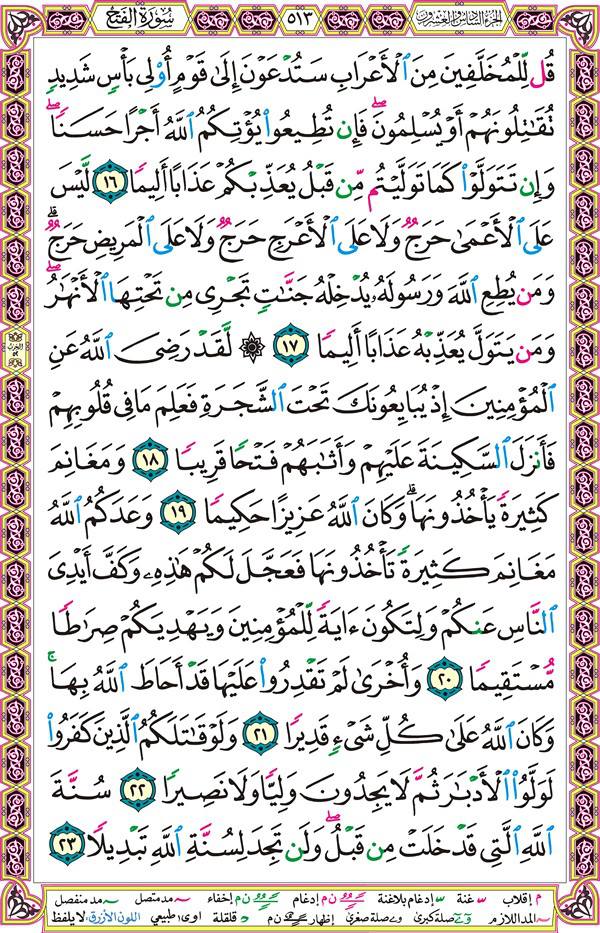 الجزء السادس والعشرون
٥١٣
سورة الفتح
قُل لِّلْمُخَلَّفِينَ مِنَ ٱلْأَعْرَابِ سَتُدْعَوْنَ إِلَىٰ قَوْمٍ أُو۟لِى بَأْسٍ شَدِيدٍ
تُقَـٰتِلُونَهُمْ أَوْ يُسْلِمُونَ ۖ فَإِن تُطِيعُوا۟ يُؤْتِكُمُ ٱللَّهُ أَجْرًا حَسَنًا ۖ
وَإِن تَتَوَلَّوْا۟ كَمَا تَوَلَّيْتُم مِّن قَبْلُ يُعَذِّبْكُمْ عَذَابًا أَلِيمًا ١٦ لَّيْسَ
عَلَى ٱلْأَعْمَىٰ حَرَجٌ وَلَا عَلَى ٱلْأَعْرَجِ حَرَجٌ وَلَا عَلَى ٱلْمَرِيضِ حَرَجٌ ۗ
وَمَن يُطِعِ ٱللَّهَ وَرَسُولَهُۥ يُدْخِلْهُ جَنَّـٰتٍ تَجْرِى مِن تَحْتِهَا ٱلْأَنْهَـٰرُ ۖ
وَمَن يَتَوَلَّ يُعَذِّبْهُ عَذَابًا أَلِيمًا ١٧ ۞ لَّقَدْ رَضِىَ ٱللَّهُ عَنِ
ٱلْمُؤْمِنِينَ إِذْ يُبَايِعُونَكَ تَحْتَ ٱلشَّجَرَةِ فَعَلِمَ مَا فِى قُلُوبِهِمْ
فَأَنزَلَ ٱلسَّكِينَةَ عَلَيْهِمْ وَأَثَـٰبَهُمْ فَتْحًا قَرِيبًا ١٨ وَمَغَانِمَ
كَثِيرَةً يَأْخُذُونَهَا ۗ وَكَانَ ٱللَّهُ عَزِيزًا حَكِيمًا ١٩ وَعَدَكُمُ ٱللَّهُ
مَغَانِمَ كَثِيرَةً تَأْخُذُونَهَا فَعَجَّلَ لَكُمْ هَـٰذِهِۦ وَكَفَّ أَيْدِىَ
ٱلنَّاسِ عَنكُمْ وَلِتَكُونَ ءَايَةً لِّلْمُؤْمِنِينَ وَيَهْدِيَكُمْ صِرَٰطًا
مُّسْتَقِيمًا ٢٠ وَأُخْرَىٰ لَمْ تَقْدِرُوا۟ عَلَيْهَا قَدْ أَحَاطَ ٱللَّهُ بِهَا ۚ
وَكَانَ ٱللَّهُ عَلَىٰ كُلِّ شَىْءٍ قَدِيرًا ٢١ وَلَوْ قَـٰتَلَكُمُ ٱلَّذِينَ كَفَرُوا۟
لَوَلَّوُا۟ ٱلْأَدْبَـٰرَ ثُمَّ لَا يَجِدُونَ وَلِيًّا وَلَا نَصِيرًا ٢٢ سُنَّةَ
ٱللَّهِ ٱلَّتِى قَدْ خَلَتْ مِن قَبْلُ ۖ وَلَن تَجِدَ لِسُنَّةِ ٱللَّهِ تَبْدِيلًا ٢٣
م إقلاب غنة إدغام بلاغنة ن م إدغام ن م إخفاء مد متصل مد منفصل
المد اللازم صلة كبرى صلة صغرى إظهار ن م قلقلة اوى طبيعي اللون الأزرق: لا يلفظ